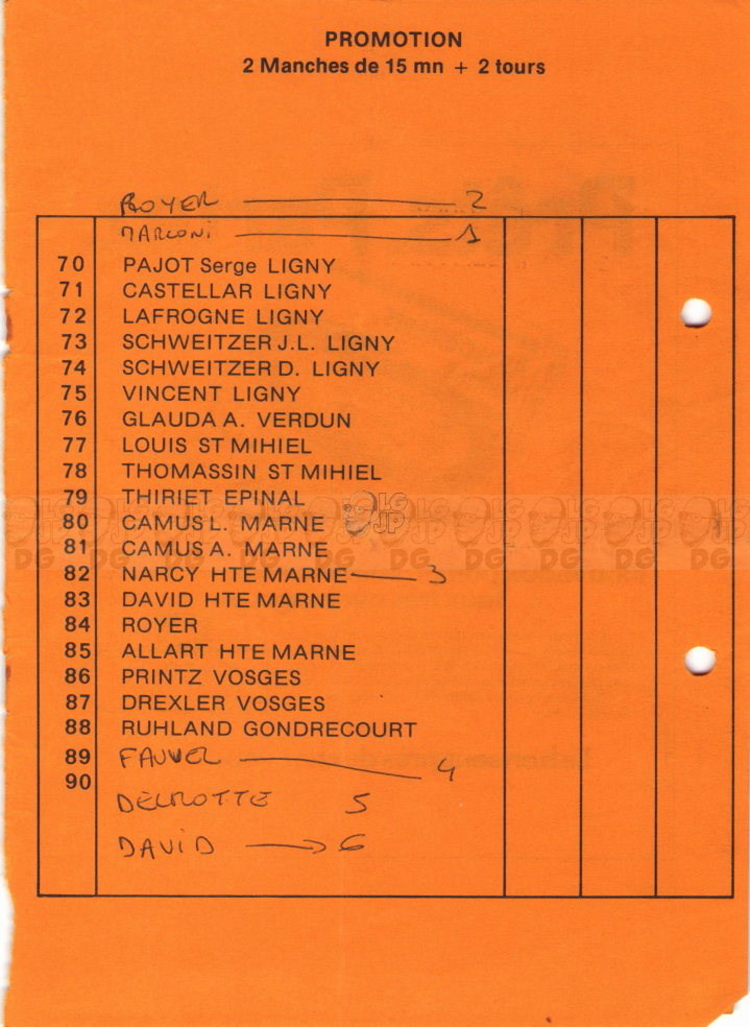 PROMOTION
2 Manches de 15 mn + 2 tours
ROYER 2
MARCONI 1
70 PAJOT Serge LIGNY
71 CASTELLAR LIGNY
72 LAFROGNE LIGNY
73 SCHWEITZER J.L. LIGNY
74 SCHWEITZER D. LIGNY
75 VINCENT LIGNY
76 GLAUDA A. VERDUN
77 LOUIS ST MIHIEL
78 THOMASSIN ST MIHIEL
79 THIRIET EPINAL
80 CAMUS L. MARNE
81 CAMUS A. MARNE
82 NARCY HTE MARNE 3
83 DAVID HTE MARNE
84 ROYER
85 ALLART HTE MARNE
86 PRINTZ VOSGES
87 DREXLER VOSGES
88 RUHLAND GONDRECOURT
89 4
90
5
DAVID → 6